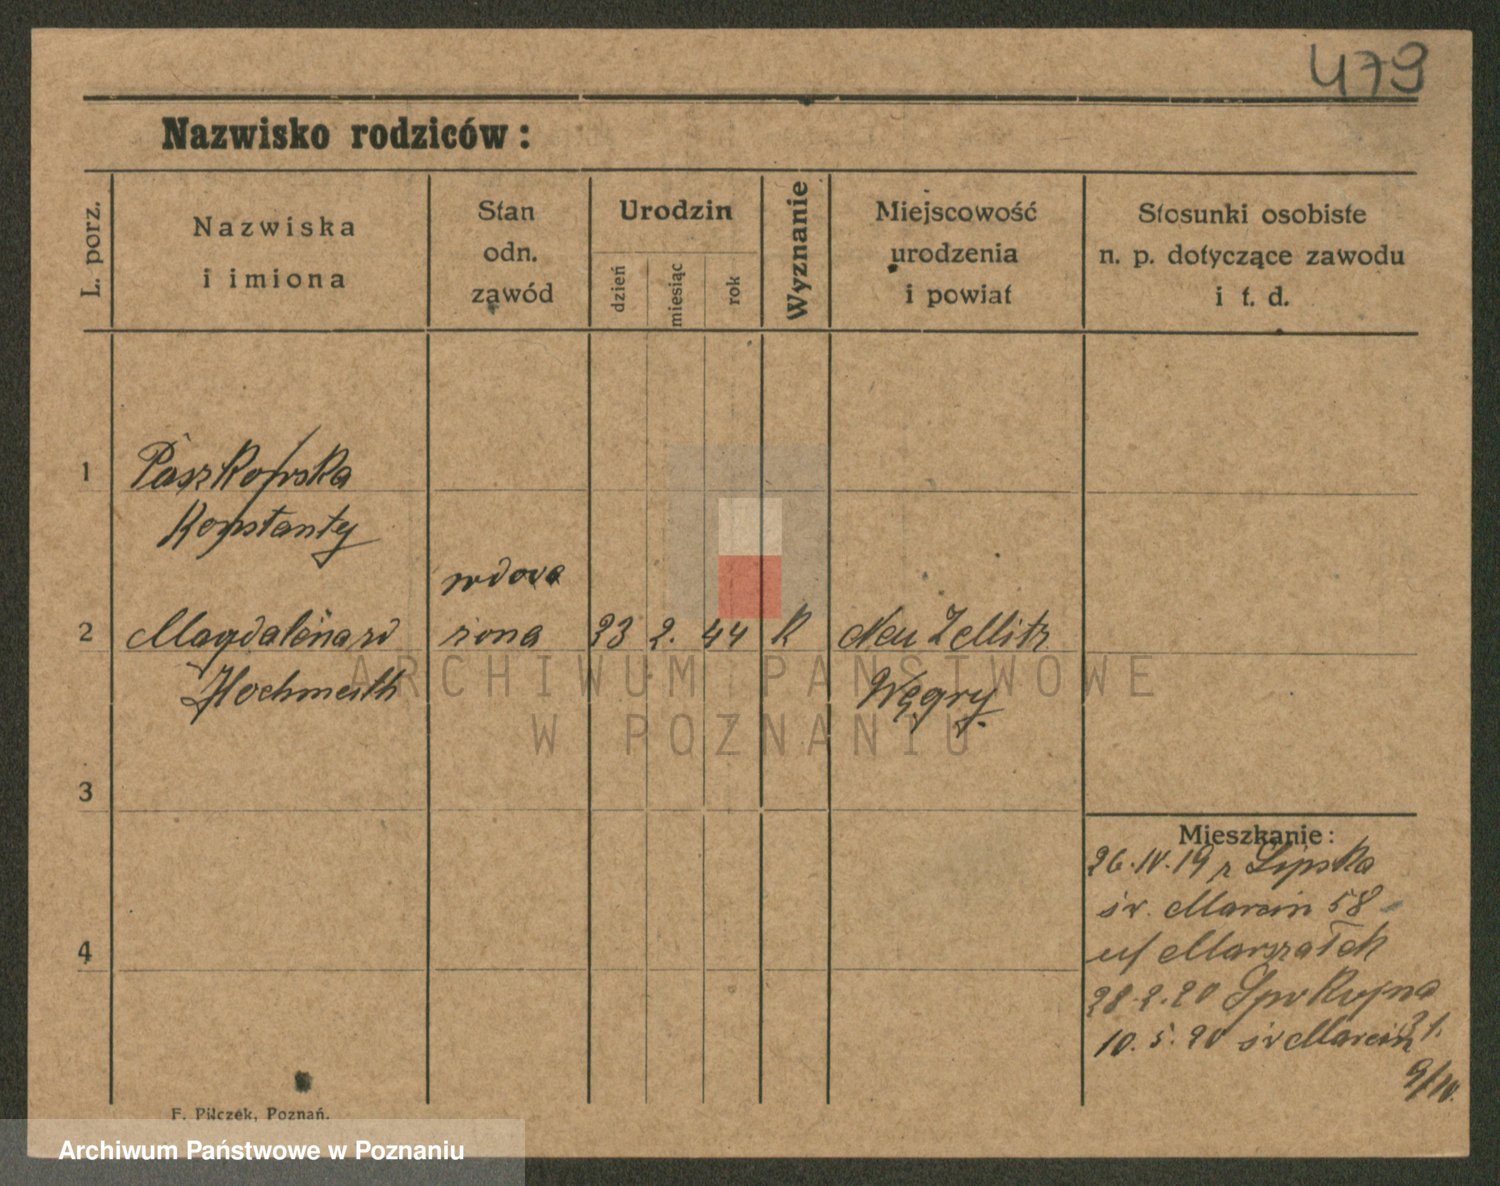 479
Nazwisko rodziców:
L. porz.
Nazwiska
i imiona
Stan
odn.
zawód
Urodzin
dzień
miesiąc
rok
Wyznanie
Miejscowość
urodzenia
i powiat
Stosunki osobiste
n. p. dotyczące zawodu
i t. d.
1
Paszkowska
Konstanty
wdowa
2
Magdalena zd
żona
23
2.
44
K
Neu Zellitz
Hochmuth
Węgry.
3
Mieszkanie:
26.IV.19 z Lipska
św. Marcin 58
u/ Marszałek
4
28.2.20 Spokojna
10.5.20 św Marcin
9/IV.
F. Pilczek, Poznań.
ARCHIWUM PAŃSTWOWE
W POZNANIU
Archiwum Państwowe w Poznaniu